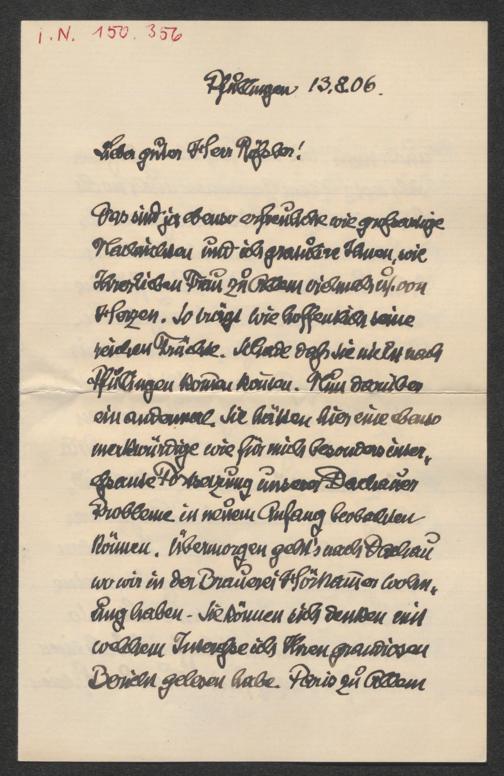 i.N. 150.356
Pfullingen 13.8.06.
Lieber guter Herr Rößler!
Das sind ja ebenso erfreuliche wie großartige
Nachrichten und ich gratuliere Ihnen, wie
Ihrer lieben Frau zu Allem vielmals u. von
Herzen. So trägt wie hoffentlich seine
reichen Früchte. Schade daß sie nicht nach
Pfullingen komen können. Nun darüber
ein andermal. Sie hätten hier eine ebenso
merkwürdige wie für mich besonders inter-
essante Fortsetzung unserer Dachauer
Probleme in neuem Anfang beobachten
können. Übermorgen geht's nach Dachau
wo wir in der Brauerei Hörhamer Wohn-
ung haben. Sie können sich denken mit
welchem Interesse ich Ihren grandiosen
Bericht gelesen habe. Paris zu Allem